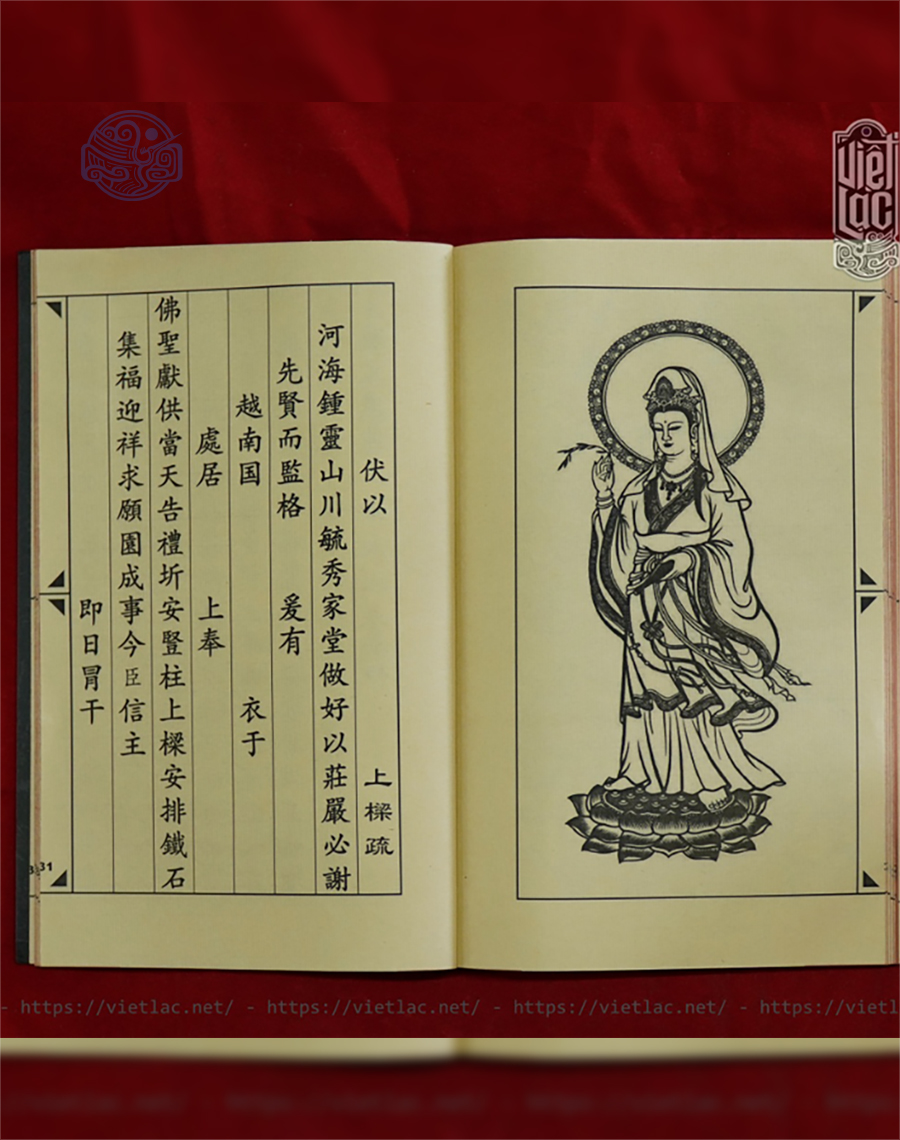 Việt Lạc
伏以 上樑疏
河海鍾靈山川毓秀家堂做好以莊嚴必謝
先賢而監格 爰有
越南国 衣于
處居 上奉
佛聖獻供當天告禮圻安豎柱上樑安排鐵石
集福迎祥求願園成事今臣信主
即日冐干
31
- https://vietlac.net/ - https://vietlac.net/ - https://vietlac.net/ - https://vietl